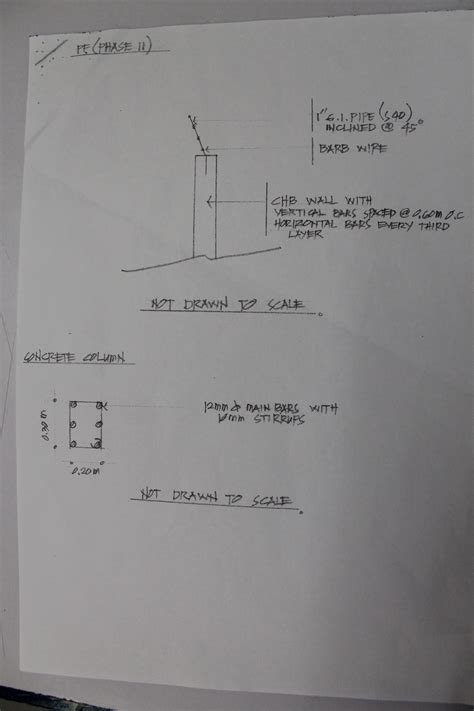 PF (PHASE II)
1" G.I. PIPE (S40)
INCLINED @ 45°
BARB WIRE
CHB WALL WITH
VERTICAL BARS SPACED @ 0.60M O.C
HORIZONTAL BARS EVERY THIRD
LAYER
NOT DRAWN TO SCALE
CONCRETE COLUMN
12mm ø MAIN BARS WITH
10mm STIRRUPS
0.30m
0.20m
NOT DRAWN TO SCALE